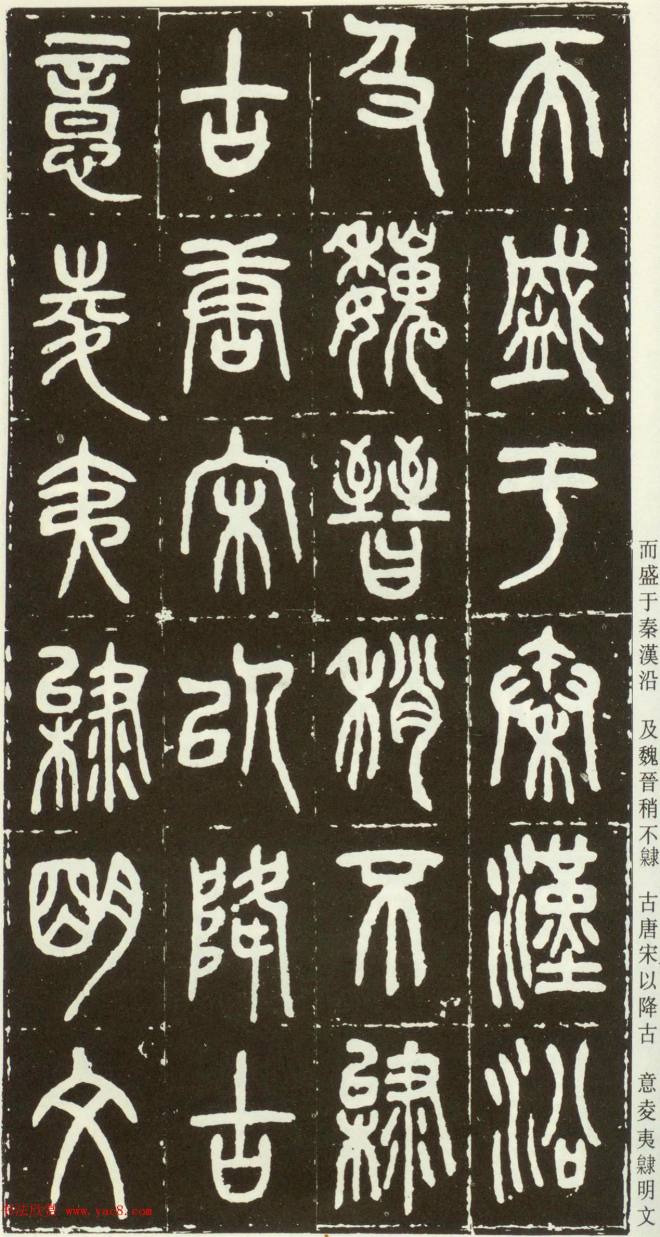 而盛于秦漢沿
及魏晉稍不隸
古唐宋以降古
意夌夷隸明文
而盛于秦漢沿 及魏晉稍不隸 古唐宋以降古 意夌夷隸明文
www.yac8.com